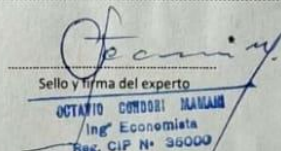 Sello y firma del experto
OCTAVIO CONDORI MAMANI
Ingº Economista
Reg. CIP Nº 35000